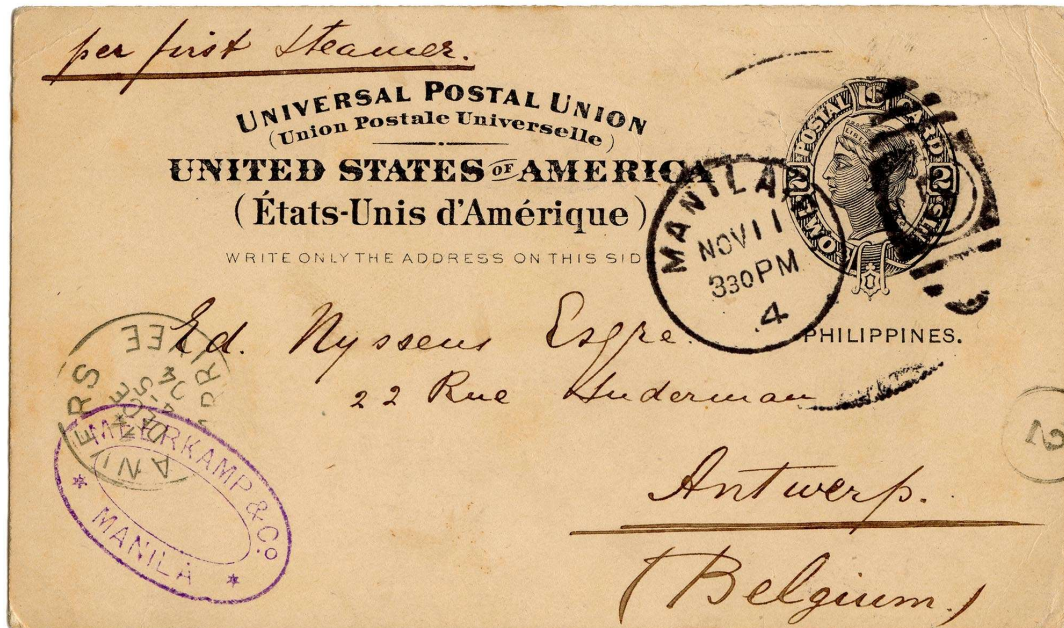 per first Steamer.
UNIVERSAL POSTAL UNION
(Union Postale Universelle)
UNITED STATES OF AMERICA
(États-Unis d'Amérique)
WRITE ONLY THE ADDRESS ON THIS SID
POSTAL CARD
2 2
MANILA
NOV 11
330PM
4
PHILIPPINES.
Ed. Nyssens Esqre.
22 Rue Suderman
Antwerp.
(Belgium.)
ANVERS
04
MEERKAMP & Co.
MANILA
2